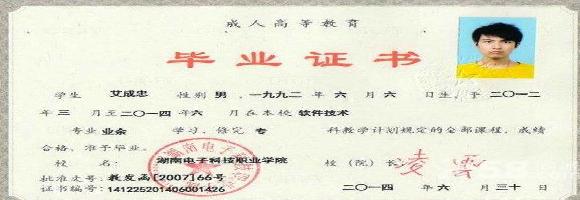 成人高等教育
毕业证书
学生 艾成忠 性别 男，一九九二 年 六 月 六 日生，于 二〇一二
年 三 月至二〇一四年 六 月在本校 软件技术
专业 业余 学习，修完 专 科教学计划规定的全部课程，成绩
合格，准予毕业。
校 名： 湖南电子科技职业学院 校（院）长： 凌云
批准文号：教发函[2007]66号
证书编号：141225201406001426 二〇一四 年 六 月 三十 日